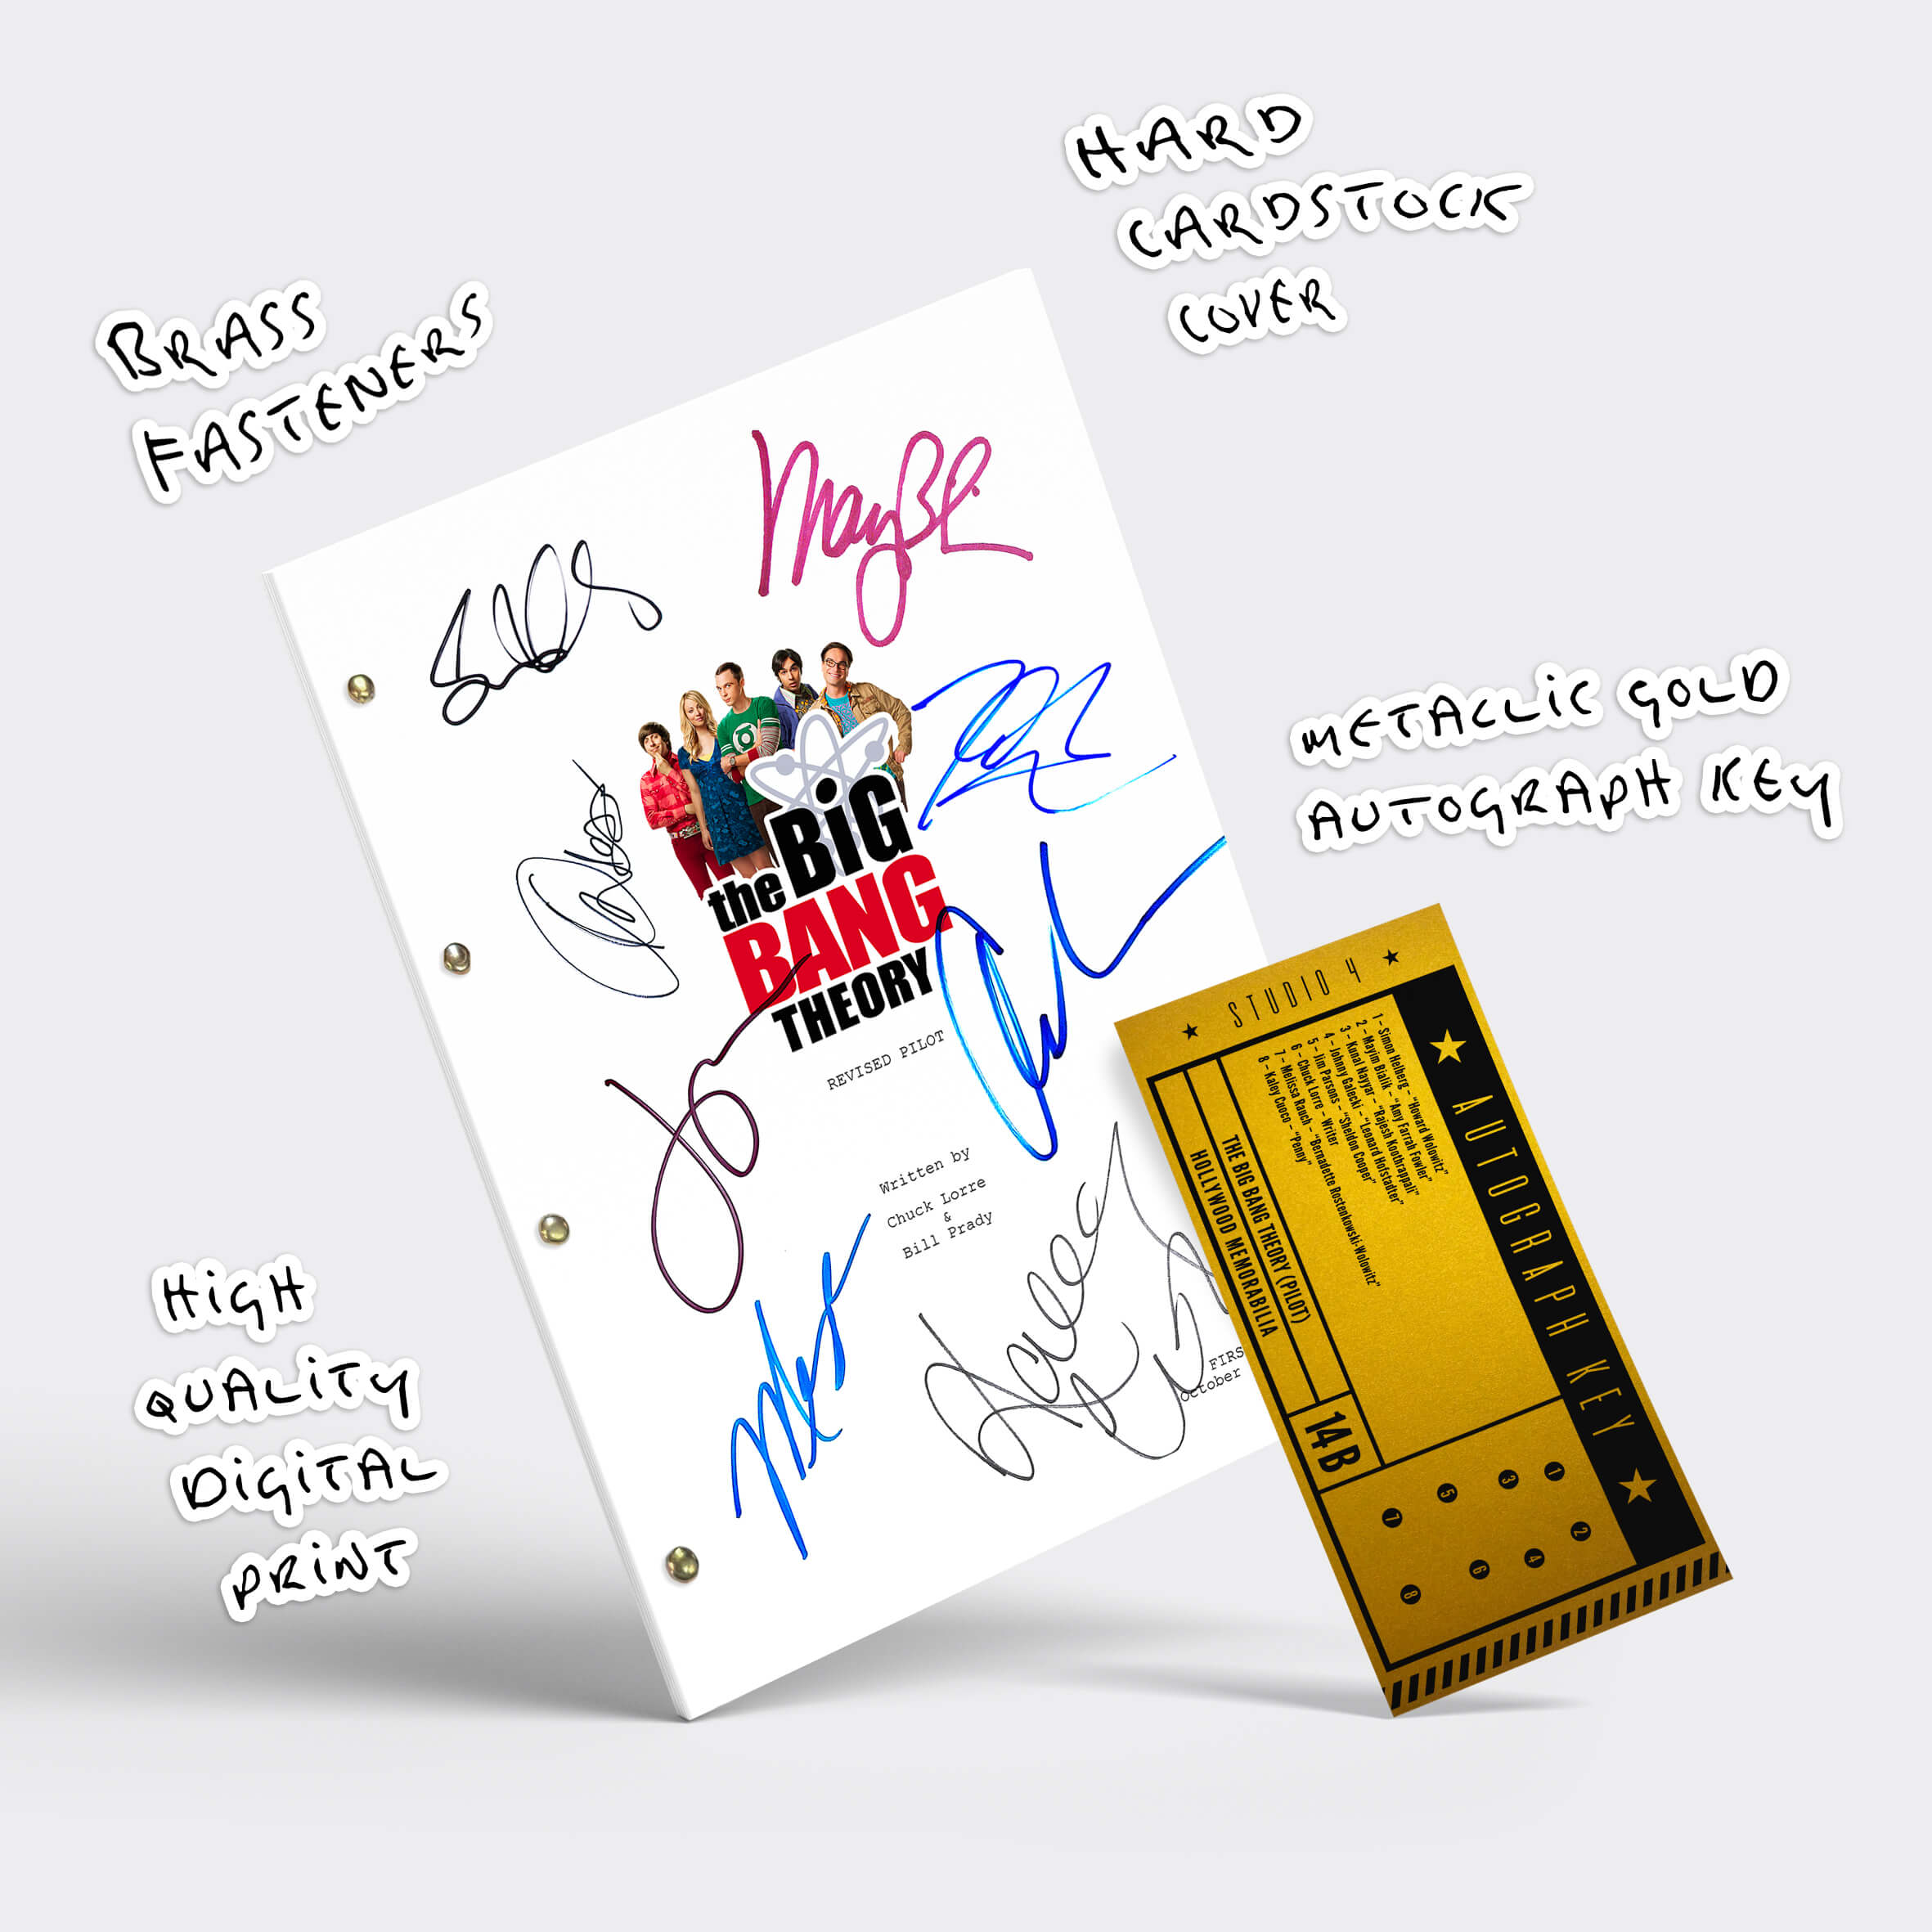 HARD
CARDSTOCK
COVER
BRASS
FASTENERS
METALLIC GOLD
AUTOGRAPH KEY
HIGH
QUALITY
DIGITAL
PRINT
the BiG
BANG
THEORY
REVISED PILOT
Written by
Chuck Lorre
&
Bill Prady
FIRS
October
★ STUDIO 4 ★
★ AUTOGRAPH KEY ★
1 - Simon Helberg - "Howard Wolowitz"
2 - Mayim Bialik - "Amy Farrah Fowler"
3 - Kunal Nayyar - "Rajesh Koothrappali"
4 - Johnny Galecki - "Leonard Hofstadter"
5 - Jim Parsons - "Sheldon Cooper"
6 - Chuck Lorre - Writer
7 - Melissa Rauch - "Bernadette Rostenkowski-Wolowitz"
8 - Kaley Cuoco - "Penny"
THE BIG BANG THEORY (PILOT)
HOLLYWOOD MEMORABILIA
14B
1
2
3
4
5
6
7
8